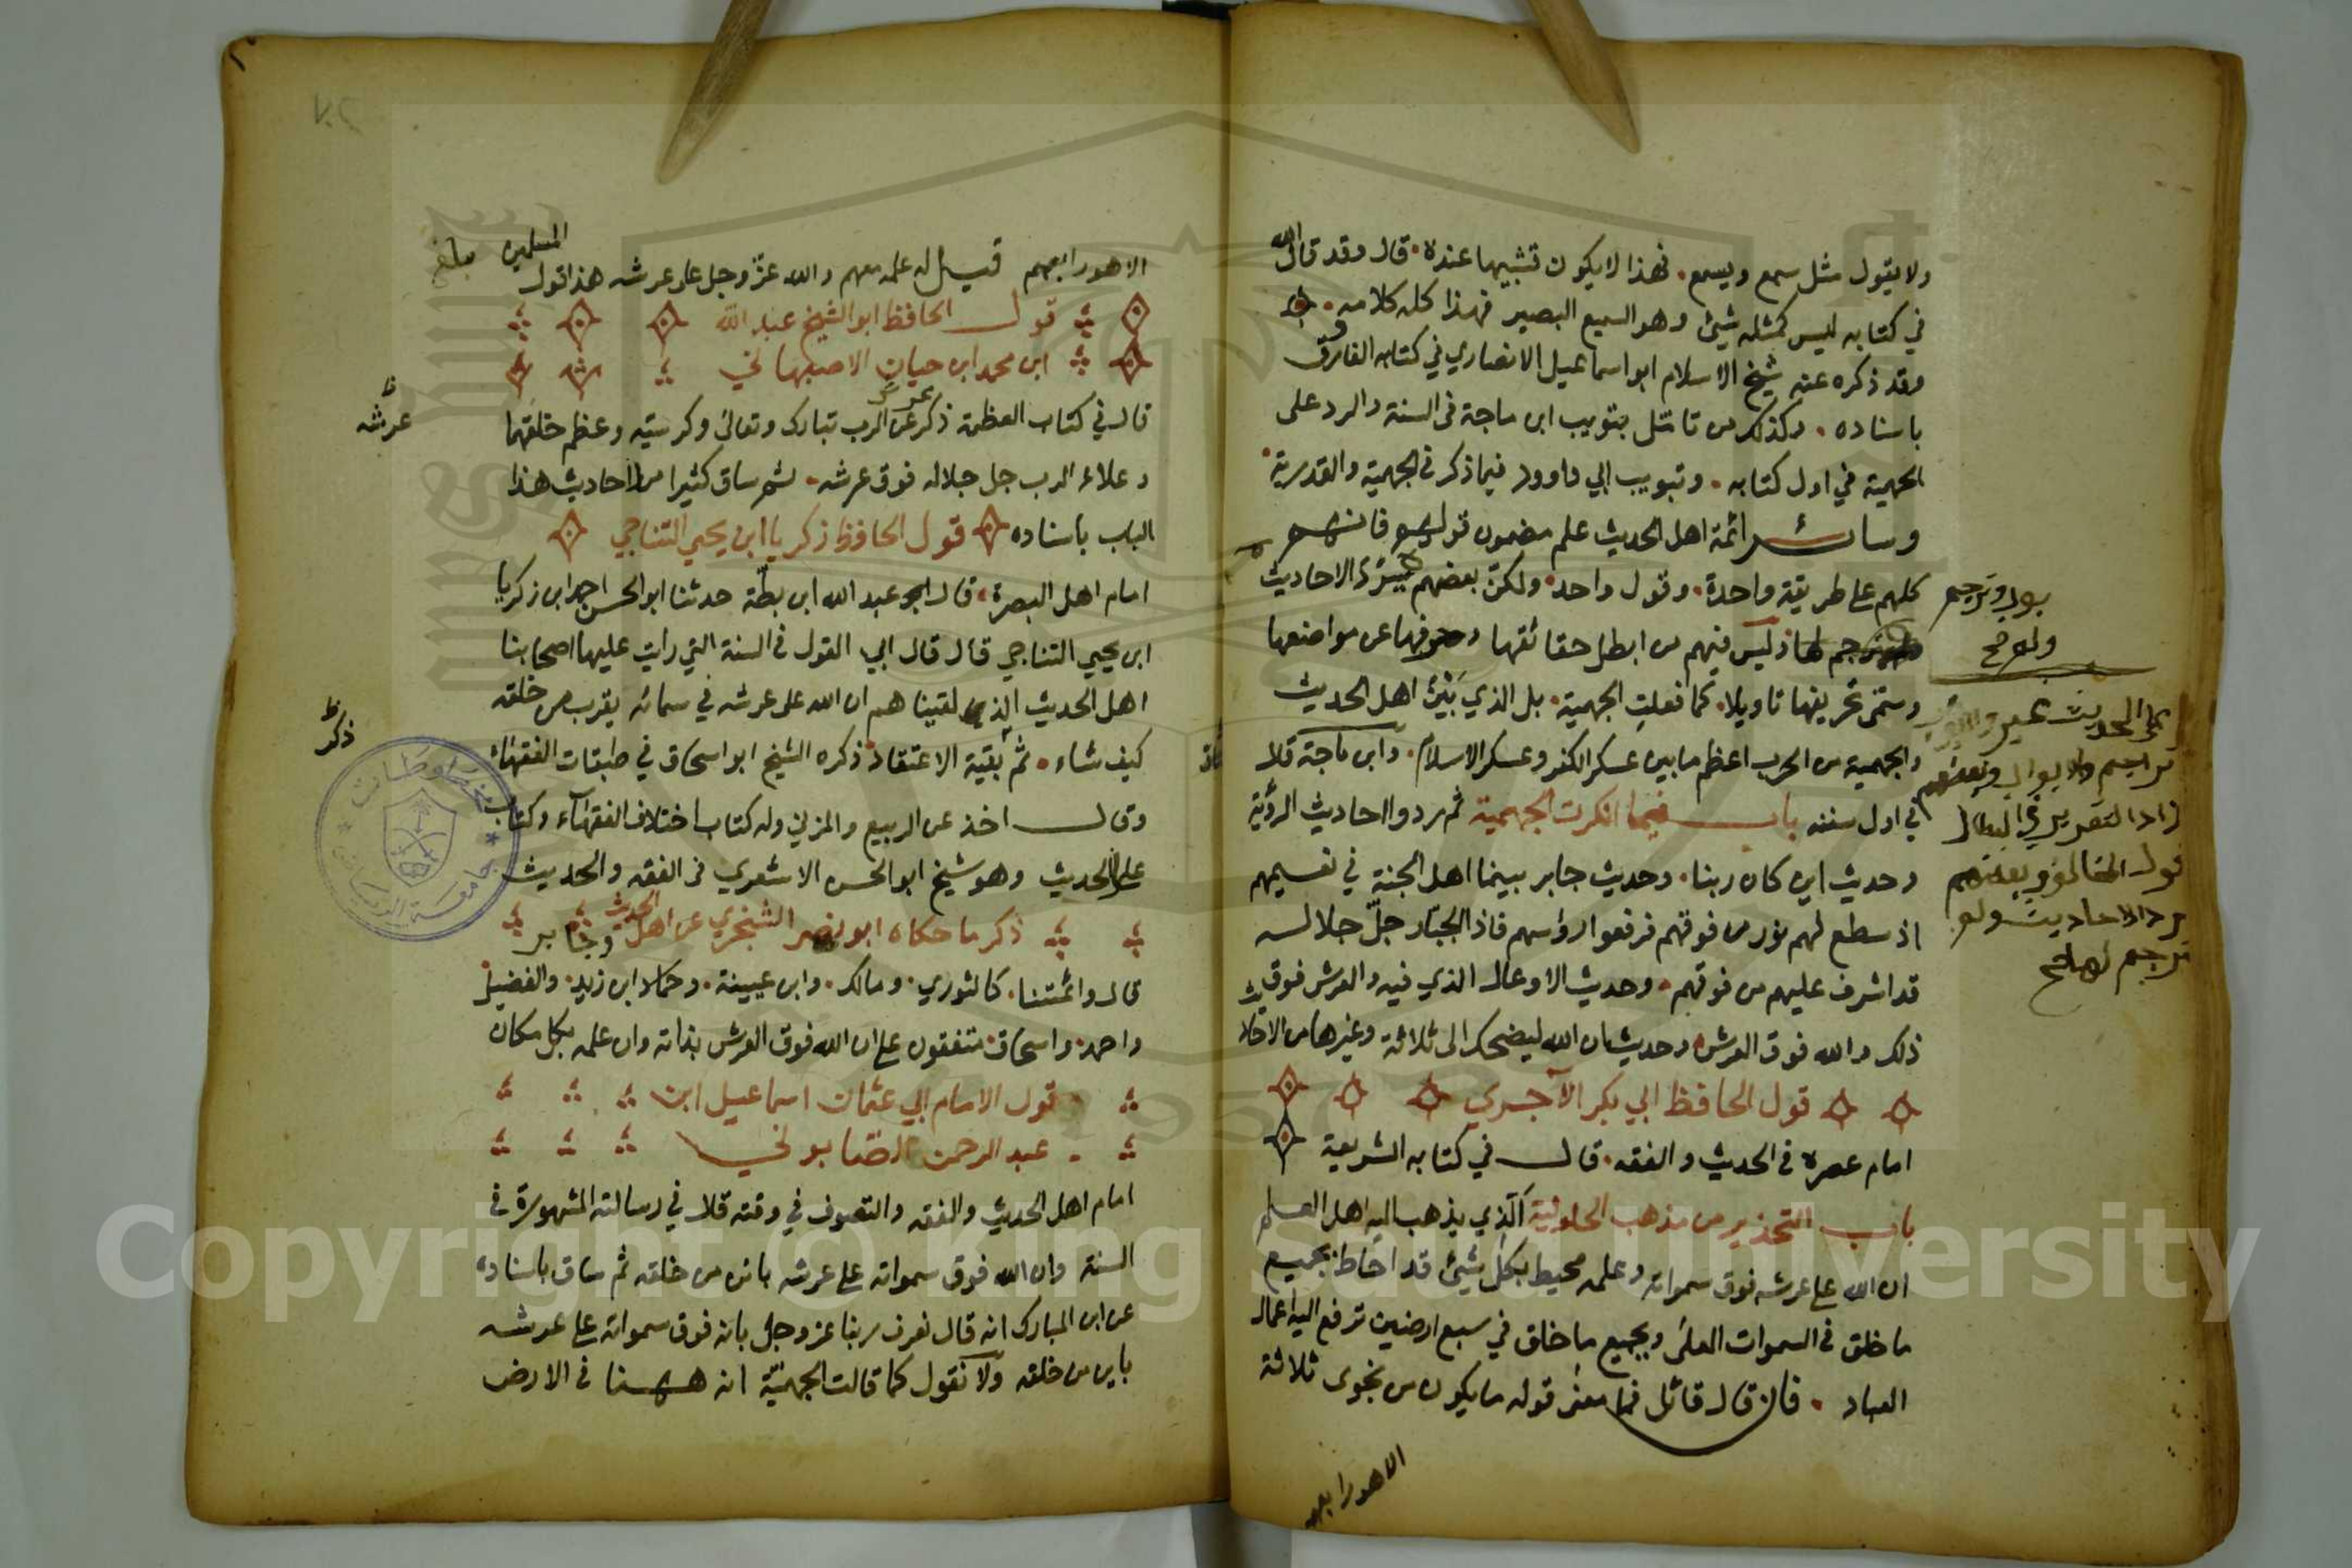 ولا يقول مثل سمع ويسمع . فهذا لا يكون تشبيها عنده . قال وقد قال الله
في كتابه ليس كمثله شيئ وهو السميع البصير فهذا كله كلامه .
وقد ذكره عنه شيخ الاسلام ابو اسماعيل الانصاري في كتابه الفاروق
باسناده . وكذلك من تامّل بتويب ابن ماجة في السنة والرد على
الجهمية في اول كتابه . وتبويب ابي داوود فيما ذكر في الجهمية والقدرية .
وسائر ائمة اهل الحديث علم مضمون قولهم فانهم
كلهم على طريقة واحدة . وقول واحد . ولكنّ بعضهم الاحاديث
ليس فيهم من ابطل حقائقها وحرفها عن مواضعها
وسمّى تحريفها تاويلا . كما فعلت الجهمية . بل الذي بَيْنَ اهل الحديث
والجهمية من الحرب اعظم ما بين عسكر الكفر وعسكر الاسلام . وابن ماجة قال
في اول سننه باب فيما انكرت الجهمية ثم ردوا احاديث الرؤية
وحديث اين كان ربنا . وحديث جابر بينما اهل الجنة في نعيمهم
اذ سطع لهم نور من فوقهم فرفعوا رؤاسهم فاذا الجبّار جلّ جلاله
قد اشرف عليهم من فوقهم . وحديث الاوعال الذي فيه والعرش فوق
ذلك والله فوق العرش وحديث ان الله ليضحك الى ثلاثة وغيرها من الاحاديث
قول الحافظ ابي بكر الآجري
امام عصره في الحديث والفقه . قال في كتابه الشريعة
باب التحذير من مذهب الحلولية الذي يذهب اليه اهل العلم
ان الله على عرشه فوق سمواته وعلمه محيط بكل شيئ قد احاط بجميع
ما خلق في السموات العلى وبجميع ما خلق في سبع ارضين ترفع اليه اعمال
العباد . فان قال قائل فما معنى قوله ما يكون من نجوى ثلاثة
الا هو رابعهم
بوب وترجم
الا هو رابعهم قيل له علمه معهم والله عزّ وجل على عرشه هذا قول
المسلمين
قول الحافظ ابو الشيخ عبد الله
ابن محمد ابن حيان الاصبهاني
قال في كتاب العظمة ذكر عرش الرب تبارك وتعالى وكرسيه وعظم خلقهما
وعلاء الرب جل جلاله فوق عرشه . ثم ساق كثيرا من احاديث هذا
عرشه
الباب باسناده قول الحافظ زكريا ابن يحيى التناجي
امام اهل البصرة . قال ابو عبد الله ابن بطّة حدثنا ابو الحسن احمد ابن زكريا
ابن يحيى التناجي قال قال ابي القول في السنة التي رايت عليها اصحابنا
اهل الحديث الذي لقيناهم ان الله على عرشه في سمائه يقرب من خلقه
كيف شاء . ثم بقية الاعتقاد ذكره الشيخ ابو اسحاق في طبقات الفقهاء
ذكر
وقال اخذ عن الربيع والمزني وله كتاب اختلاف الفقهاء وكتاب
علل الحديث وهو شيخ ابو الحسن الاشعري في الفقه والحديث
ذكر ما حكاه ابو نصر الشجري عن اهل الحديث
قال وائمتنا . كالثوري . ومالك . وابن عيينة . وحماد ابن زيد . والفضيل
واحمد . واسحاق . متفقون على ان الله فوق العرش بذاته وان علمه بكل مكان
قول الامام ابي عثمان اسماعيل ابن
عبد الرحمن الصّابوني
امام اهل الحديث والفقه والتصوف في وقته قال في رسالته المشهورة في
السنة وان الله فوق سمواته على عرشه بائن من خلقه ثم ساق باسناده
عن ابن المبارك انه قال نعرف ربنا عز وجل بانه فوق سمواته على عرشه
باين من خلقه ولا نقول كما قالت الجهميّة انه ههنا في الارض
Copyright © King Saud University
1957